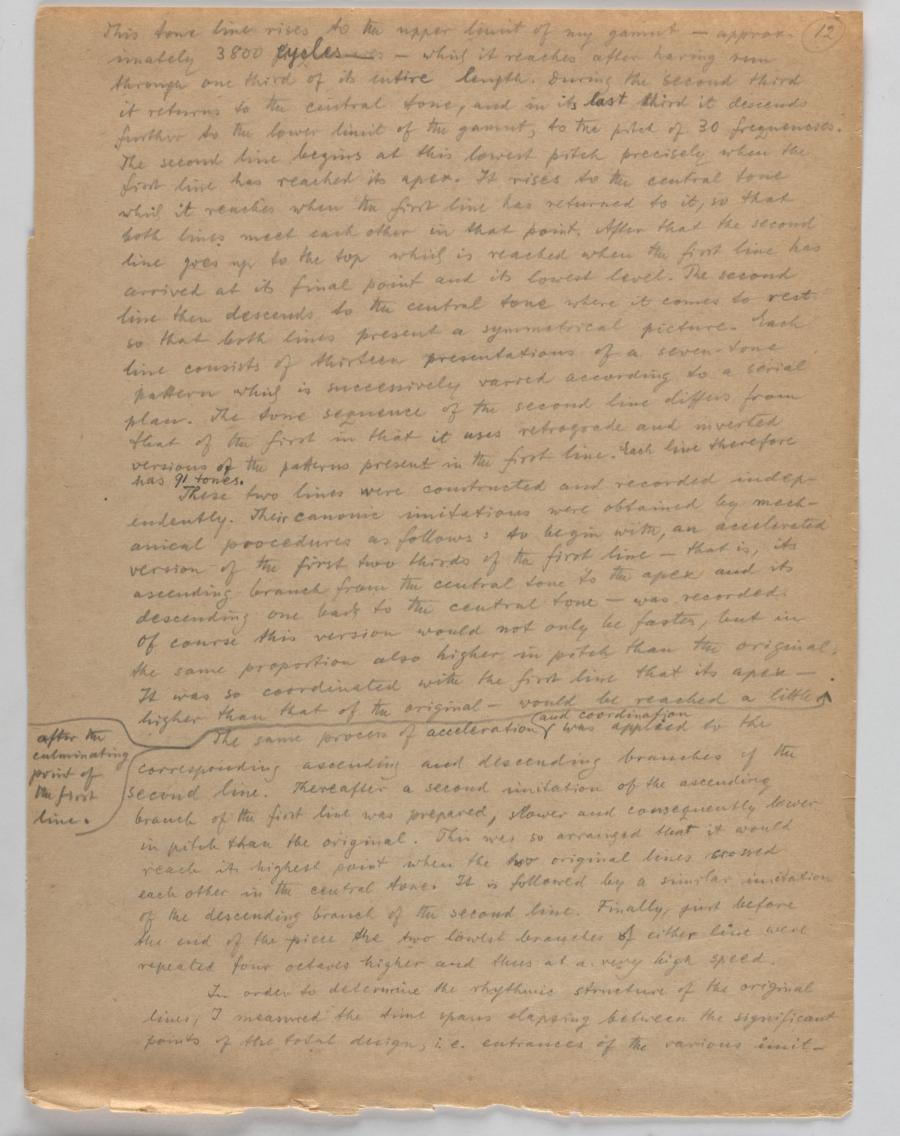 12
This tone line rises to the upper limit of my gamut — approx-
imately 3800 cycles — which it reaches after having run
through one third of its entire length. During the second third
it returns to the central tone, and in its last third it descends
further to the lower limit of the gamut, to the pitch of 30 frequencies.
The second line begins at this lowest pitch precisely when the
first line has reached its apex. It rises to the central tone
which it reaches when the first line has returned to it, so that
both lines meet each other in that point. After that the second
line goes up to the top which is reached when the first line has
arrived at its final point and its lowest level. The second
line then descends to the central tone where it comes to rest
so that both lines present a symmetrical picture. Each
line consists of thirteen presentations of a seven-tone
pattern which is successively varied according to a serial
plan. The tone sequence of the second line differs from
that of the first in that it uses retrograde and inverted
versions of the patterns present in the first line. Each line therefore
has 91 tones.
These two lines were constructed and recorded indep-
endently. Their canonic imitations were obtained by mech-
anical procedures as follows: to begin with, an accelerated
version of the first two thirds of the first line — that is, its
ascending branch from the central tone to the apex and its
descending one back to the central tone — was recorded.
Of course this version would not only be faster, but in
the same proportion also higher in pitch than the original.
It was so coordinated with the first line that its apex —
higher than that of the original — would be reached a little
after the
culminating
point of
the first
line.
The same process of acceleration and coordination was applied to the
corresponding ascending and descending branches of the
second line. Thereafter a second imitation of the ascending
branch of the first line was prepared, slower and consequently lower
in pitch than the original. This was so arranged that it would
reach its highest point when the two original lines crossed
each other in the central tone. It is followed by a similar imitation
of the descending branch of the second line. Finally, just before
the end of the piece the two lowest branches of either line were
repeated four octaves higher and thus at a very high speed.
In order to determine the rhythmic structure of the original
lines, I measured the time spans elapsing between the significant
points of the total design, i.e. entrances of the various imit-